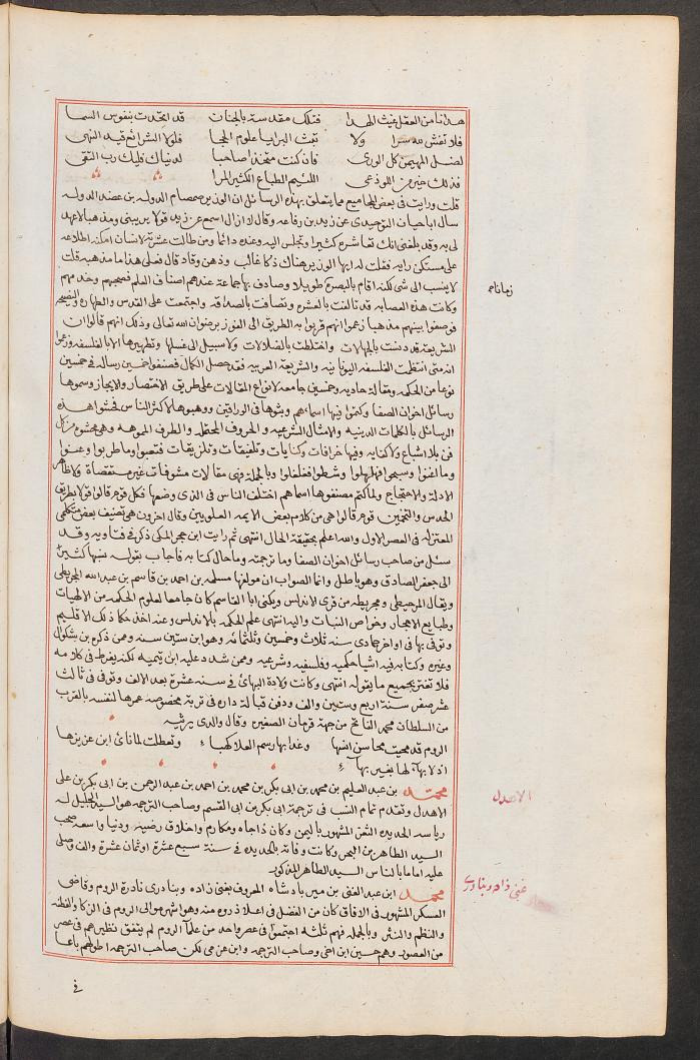 هدانا من العقل غيث الحدا فتلك مقدسة بالجنان قد اتحدت بنفوس السما
فلا تفش لله سرا ولا تبث البرايا علوم الحجا فلولا الشرائع قيد النهى
لضل المهيمن كل الورى فان كنت متخذا صاحبا لدنياك فليك رب التقى
فذلك خير من اللوذعى اللئيم الطباع الكثير المرا
قلت ورايت فى بعض المجاميع مما يتعلق بهذه الرسائل ان الوزير صمصام الدوله بن عضد الدوله
سال اباحيان التوحيدى عن زيد بن رفاعه وقال لا ازال اسمع عن زيد قولا يريبنى ومذهبا لاعهد
لى به وقد بلغنى انك تعاشره كثيرا وتجلس اليه وعنده دائما ومن طالت عشرته لانسان امكنه اطلاعه
على مستكن رايه فقلت له ايها الوزير هناك ذكا غالب وذهن وقاد قال فعلى هذا ما مذهبه قلت
لا ينسب الى شى لكنه اقام بالبصرة طويلا وصادف بها جماعة عندهم اصناف العلم فصحبهم وخدمهم
زمانا صح
وكانت هذه العصابه قد تالفت بالعشره وتصافت بالصداقه واجتمعت على القدس والطهاره والنصيحه
فوضعوا بينهم مذهبا زعموا انهم قربوا به الطريق الى الفوز برضوان الله تعالى وذلك انهم قالوا ان
الشريعة قد دنست بالجهالات واختلطت بالضلالات ولا سبيل الى غسلها وتطهيرها الا بالفلسفه وزعموا
انه متى انتظمت الفلسفه اليونانيه والشريعة العربيه فقد حصل الكمال فصنفوا خمسين رساله فى خمسين
نوعا من الحكمه ومقالة حاديه وخمسين جامعه لانواع المقالات على طريق الاختصار والايجاز وسموها
رسائل اخوان الصفا وكتموا فيها اسماءهم وبثوها فى الوراقين ووهبوها لاكثر الناس فحشوا هذه
الرسائل بالكلمات الدينيه والامثال الشرعيه والحروف المحتمله والطرف المموهه وهى محشوه من كل
فن بلا اشباع ولا كفايه وفيها خرافات وكنايات وتلفيقات وتلزيقات فتعبوا وما طربوا وعنوا
وما اغنوا ونسجوا فهلهلوا ومشطوا ففلفلوا وبالجملة فهى مقالات مشوقات غير مستقصاة ولا ظاهرة
الادلة والاحتجاج ولما كتم مصنفوها اسماهم اختلف الناس فى الذى وضعها فكل قوم قالوا قولا بطريق
الحدس والتخمين قوم قالوا هى من كلام بعض الائمه العلويين وقال اخرون هى تصنيف بعض متكلمى
المعتزله فى العصر الاول والله اعلم بحقيقة الحال انتهى ثم رايت ابن حجر المكى ذكر فى فتاويه وقد
سئل من صاحب رسائل اخوان الصفا وما ترجمته وما حال كتابه فاجاب بقوله نسبها كثيرون
الى جعفر الصادق وهو باطل وانما الصواب ان مولفها مسلمه بن احمد بن قاسم بن عبد الله المجريطى
ويقال المرحيطى ومجريطه من قرى الاندلس ويكنى ابا القاسم كان جامعا لعلوم الحكمه من الالهيات
وطبايع الاحجار وخواص النبات واليه انتهى علم الحكمه بالاندلس وعنه اخذ حكما ذلك الاقليم
وتوفى بها فى اواخر جمادى سنه ثلاث وخمسين وثلثمائه وهو ابن ستين سنه وممن ذكره بن بشكوال
وغيره وكتابه فيه اشيا حكميه وفلسفيه وشرعيه وممن شدد عليه ابن تيميه لكنه يفرط فى كلامه
فلا تغتر بجميع ما يقوله انتهى وكانت ولادة البهائ فى سنه عشرة بعد الالف وتوفى فى ثالث
عشر صفر سنة اربع وستين والف ودفن قبالة داره فى تربة مخصوصه عمرها لنفسه بالقرب
من السلطان محمد الفاتح من جهة قرمان الصغير وقال والدى يرثيه
الروم قد محيت محاسن انسها وغدا بها رسم العلا كهباء وتعطلت لما نائ ابن عزيزها
اذ لا بهآء لها بغير بهاء
محمد بن عبد العليم بن محمد بن ابى بكر بن محمد بن احمد بن عبد الرحمن بن ابى بكر بن على
الاهدل
الاهدل وتقدم تمام النسب فى ترجمة ابى بكر بن ابى القسم وصاحب الترجمه هو السيد الجليل له
رياسه الحديده الثغر المشهور باليمن وكان ذا جاه ومكارم واخلاق رضيه ودنيا واسعه صحب
السيد الطاهر بن البحر وكانت وفاته بالحديده فى سنة سبع عشرة او ثمان عشرة والف وصلى
عليه اماما بالناس السيد الطاهر المذكور
غنى زاده نادرى
محمد ابن عبد الغنى بن مير بادشاه المعروف بغنى زاده وبنادرى نادرة الروم وقاضى
العسكر المشهور فى الافاق كان من الفضل فى اعلا ذروه منه وهو اشهر موالى الروم فى الذكا والفطنه
والنظم والنثر وبالجمله فهم ثلثه اجتمعوا فى عصر واحد من علمآ الروم لم يتفق نظيرهم فى عصر
من العصور وهم حسين ابن اخى وصاحب الترجمه وابن عزمى لكن صاحب الترجمه اطولهم باعا
فى